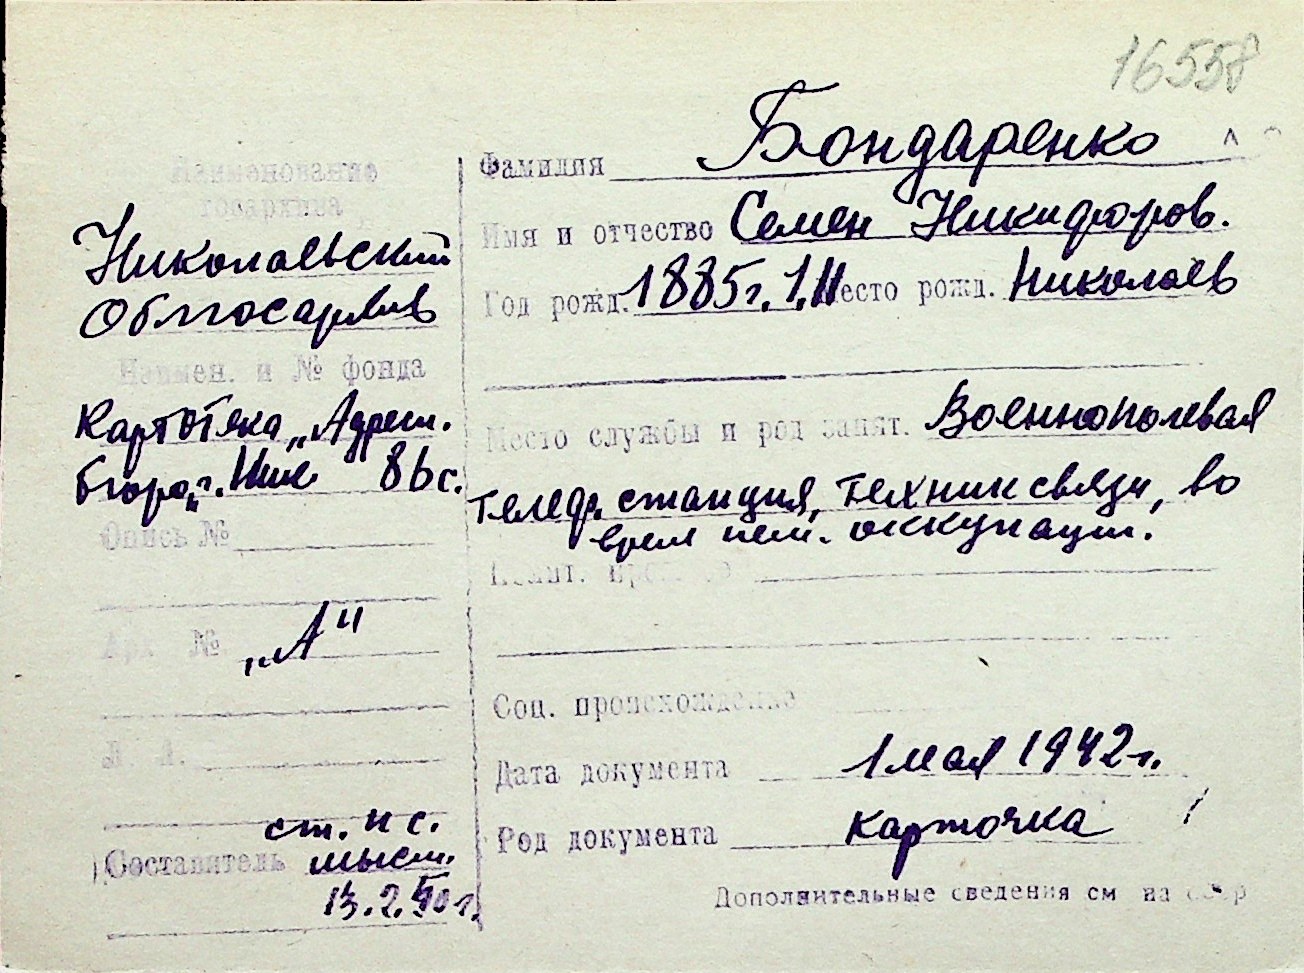 16558
Наименование
госархива
Николаевский
Облгосархив
Наимен. и № фонда
Картотека „Адресн.
бюро" г. Ник 86 с.
Опись №
Арх. №
„А"
Л. Л.
ст. н с.
Составитель
13.2.50 г.
Фамилия Бондаренко
Имя и отчество Семен Никифоров.
Год рожд. 1885 г. 1.II Место рожд. Николаев
Место службы и род занят. Военнополевая
телеф. станция, техник связи, во
время нем. оккупации.
Соц. происхождение
Дата документа 1 мая 1942 г.
Род документа карточка
Дополнительные сведения см на обор